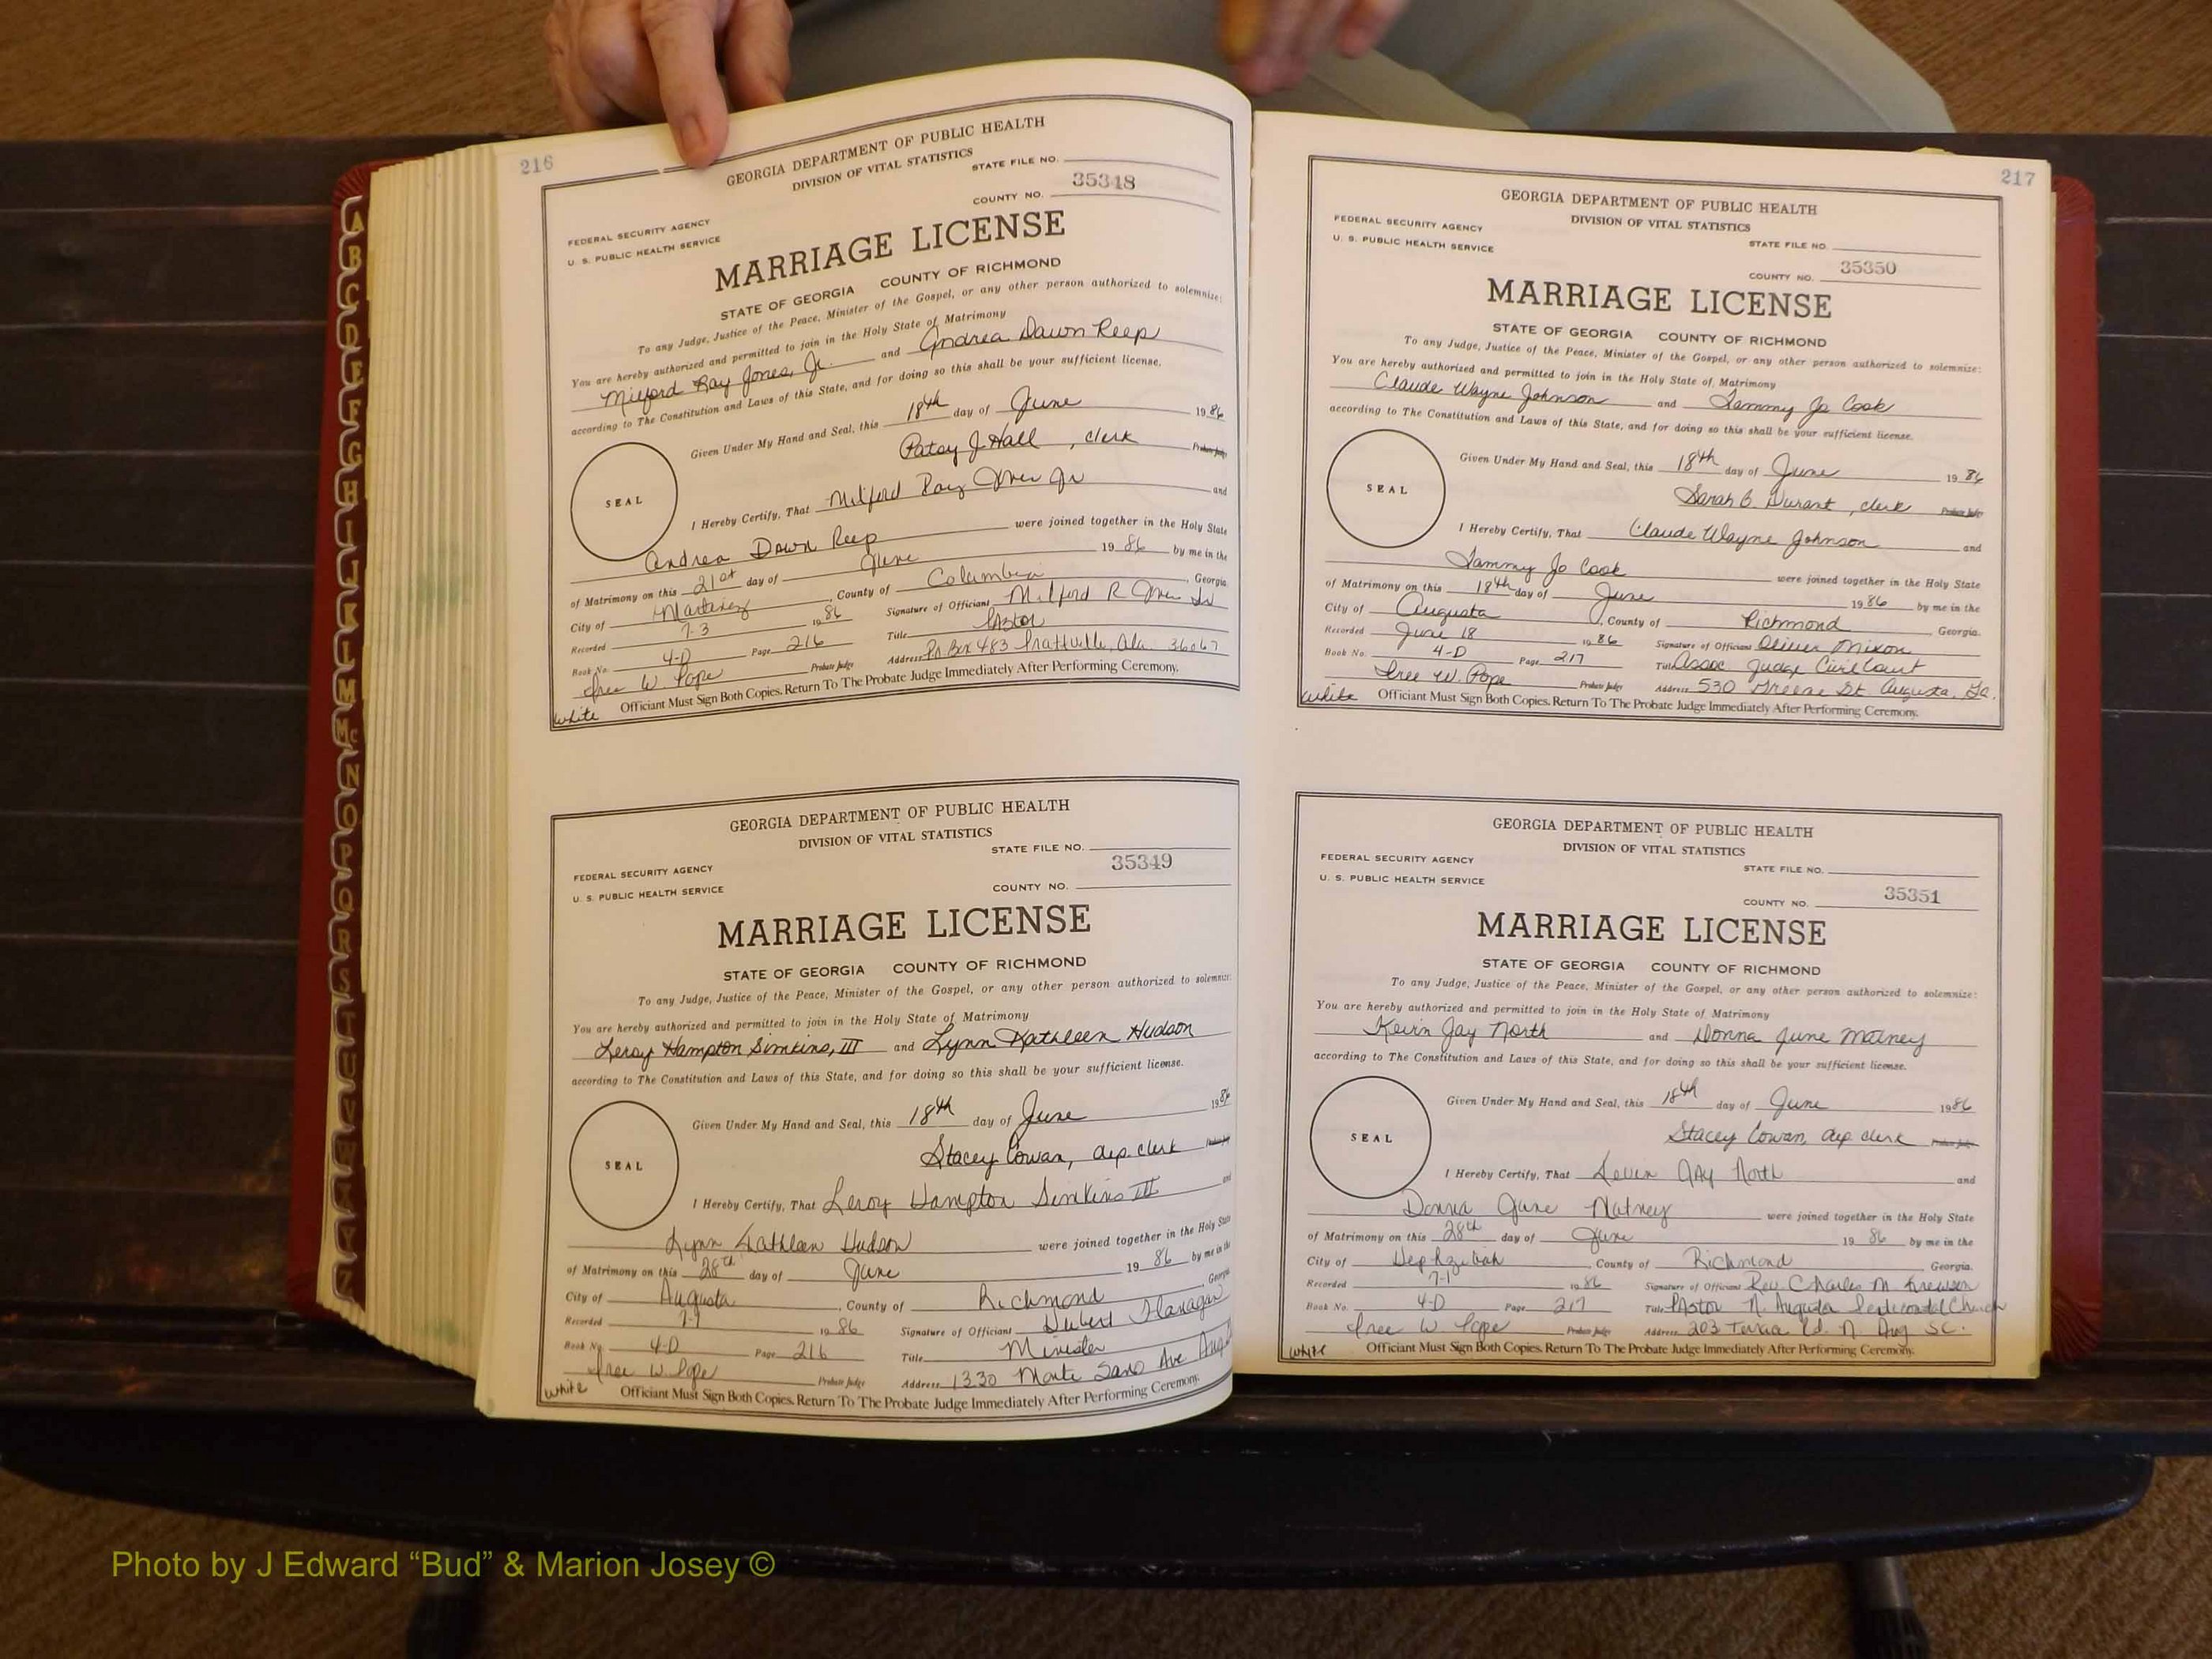 216
GEORGIA DEPARTMENT OF PUBLIC HEALTH
DIVISION OF VITAL STATISTICS
STATE FILE NO.
COUNTY NO. 35348
FEDERAL SECURITY AGENCY
U. S. PUBLIC HEALTH SERVICE
MARRIAGE LICENSE
STATE OF GEORGIA COUNTY OF RICHMOND
To any Judge, Justice of the Peace, Minister of the Gospel, or any other person authorized to solemnize:
You are hereby authorized and permitted to join in the Holy State of Matrimony
Milford Ray Jones, Jr. and Andrea Dawn Reep
according to The Constitution and Laws of this State, and for doing so this shall be your sufficient license.
Given Under My Hand and Seal, this 18th day of June 1986
Patsy J Hall, clerk Probate Judge
SEAL
I Hereby Certify, That Milford Ray Jones Jr and
Andrea Dawn Reep were joined together in the Holy State
of Matrimony on this 21st day of June 1986 by me in the
City of Martinez, County of Columbia, Georgia
Recorded 7-3 1986 Signature of Officiant Milford R Jones Sr
Book No. 4-D Page 216 Title Pastor
W. Pope Probate Judge Address P.O. Box 483 Prattville, Ala. 36067
white Officiant Must Sign Both Copies. Return To The Probate Judge Immediately After Performing Ceremony.
GEORGIA DEPARTMENT OF PUBLIC HEALTH
DIVISION OF VITAL STATISTICS
STATE FILE NO.
FEDERAL SECURITY AGENCY
U. S. PUBLIC HEALTH SERVICE
COUNTY NO. 35349
MARRIAGE LICENSE
STATE OF GEORGIA COUNTY OF RICHMOND
To any Judge, Justice of the Peace, Minister of the Gospel, or any other person authorized to solemnize:
You are hereby authorized and permitted to join in the Holy State of Matrimony
Leroy Hampton Simkins, III and Lynn Kathleen Hudson
according to The Constitution and Laws of this State, and for doing so this shall be your sufficient license.
Given Under My Hand and Seal, this 18th day of June 1986
Stacey Cowan, dep. clerk Probate Judge
SEAL
I Hereby Certify, That Leroy Hampton Simkins III and
Lynn Kathleen Hudson were joined together in the Holy State
of Matrimony on this 28th day of June 1986 by me in the
City of Augusta, County of Richmond, Georgia
Recorded 1986 Signature of Officiant Hubert Flanagan
Book No. 4-D Page 216 Title Minister
W. Pope Probate Judge Address 1330 Monte Sano Ave
white Officiant Must Sign Both Copies. Return To The Probate Judge Immediately After Performing Ceremony.
217
GEORGIA DEPARTMENT OF PUBLIC HEALTH
DIVISION OF VITAL STATISTICS
FEDERAL SECURITY AGENCY
U. S. PUBLIC HEALTH SERVICE
STATE FILE NO.
COUNTY NO. 35350
MARRIAGE LICENSE
STATE OF GEORGIA COUNTY OF RICHMOND
To any Judge, Justice of the Peace, Minister of the Gospel, or any other person authorized to solemnize:
You are hereby authorized and permitted to join in the Holy State of Matrimony
Claude Wayne Johnson and Tammy Jo Cook
according to The Constitution and Laws of this State, and for doing so this shall be your sufficient license.
Given Under My Hand and Seal, this 18th day of June 1986
Sarah B. Durant, clerk Probate Judge
SEAL
I Hereby Certify, That Claude Wayne Johnson and
Tammy Jo Cook were joined together in the Holy State
of Matrimony on this 18th day of June 1986 by me in the
City of Augusta, County of Richmond Georgia.
Recorded June 18 1986 Signature of Officiant Oliver Mixon
Book No. 4-D Page 217 Title Assoc Judge Civil Court
W. Pope Probate Judge Address 530 Greene St. Augusta, Ga.
white Officiant Must Sign Both Copies. Return To The Probate Judge Immediately After Performing Ceremony.
GEORGIA DEPARTMENT OF PUBLIC HEALTH
DIVISION OF VITAL STATISTICS
FEDERAL SECURITY AGENCY
U. S. PUBLIC HEALTH SERVICE
STATE FILE NO.
COUNTY NO. 35351
MARRIAGE LICENSE
STATE OF GEORGIA COUNTY OF RICHMOND
To any Judge, Justice of the Peace, Minister of the Gospel, or any other person authorized to solemnize:
You are hereby authorized and permitted to join in the Holy State of Matrimony
Kevin Jay North and Donna June
according to The Constitution and Laws of this State, and for doing so this shall be your sufficient license.
Given Under My Hand and Seal, this 18th day of June 1986
Stacey Cowan, dep clerk Probate Judge
SEAL
I Hereby Certify, That Kevin Jay North and
Donna June were joined together in the Holy State
of Matrimony on this 28th day of June 1986 by me in the
City of Hephzibah, County of Richmond Georgia.
Recorded 7-1 1986 Signature of Officiant Rev. Charles M.
Book No. 4-D Page 217 Title Pastor N. Augusta Pentecostal Church
W Pope Probate Judge Address 203 Rd. N. Aug SC.
white Officiant Must Sign Both Copies. Return To The Probate Judge Immediately After Performing Ceremony.
A
B
C
D
E
F
G
H
I
J
K
L
M
Mc
N
O
P
Q
R
S
T
U
V
W
Photo by J Edward “Bud” & Marion Josey ©